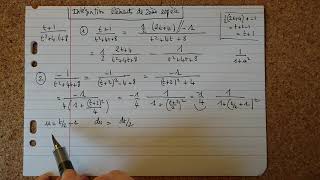 Intégration éléments de 2ème espèce
t+1 / t²+4t+8
① t+1 / t²+4t+8 = ½ (2t+4) - 1 / t²+4t+8
½(2t+4) - 1 = t+2-1 = t+1
= 1/2 2t+4 / t²+4t+8 - 1 / t²+4t+8
1 / 1+u²
② -1 / t²+4t+8 = -1 / (t+2)²-4+8 = -1 / (t+2)²+4
= -1 / 4(1+(t+2)²/4) = -1/4 1 / 1+(t+2/2)² = -1/4 1 / 1+(t/2+1)²
u = t/2+1 du = dt/2